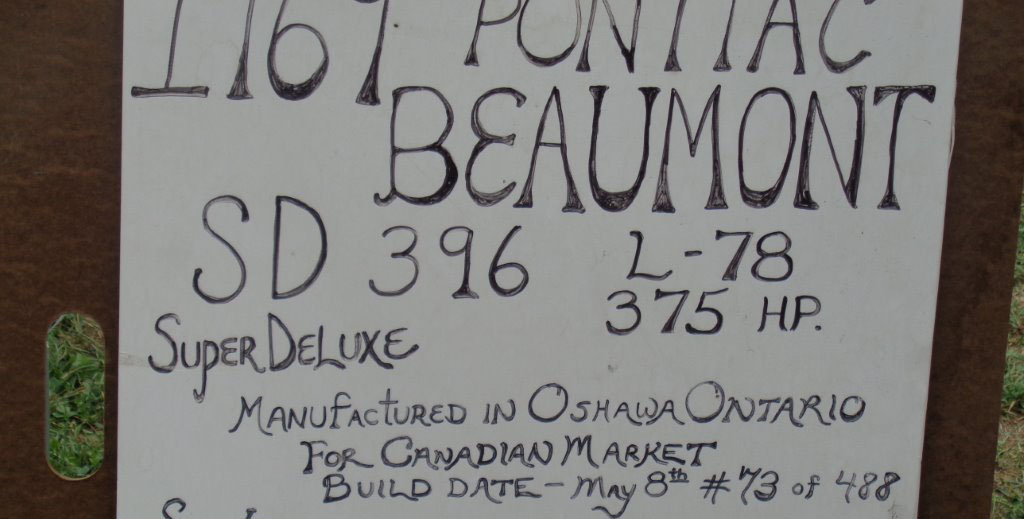 1969 PONTIAC
BEAUMONT
SD 396 L-78
375 HP.
SUPER DELUXE
MANUFACTURED IN OSHAWA ONTARIO
FOR CANADIAN MARKET
BUILD DATE - May 8th # 73 of 488